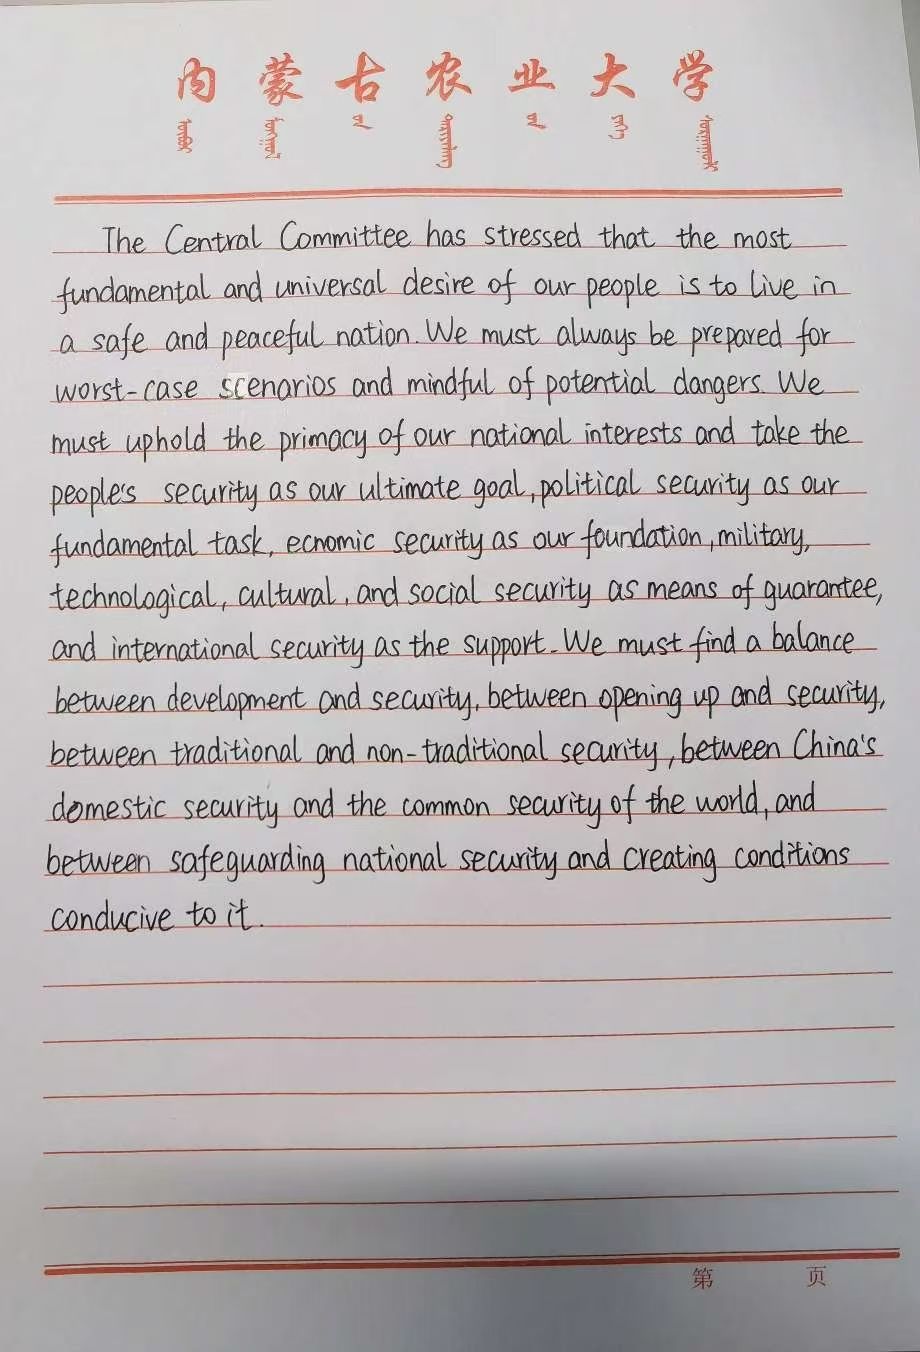 内蒙古农业大学
The Central Committee has stressed that the most
fundamental and universal desire of our people is to live in
a safe and peaceful nation. We must always be prepared for
worst-case scenarios and mindful of potential dangers. We
must uphold the primacy of our national interests and take the
people's security as our ultimate goal, political security as our
fundamental task, ecnomic security as our foundation, military,
technological, cultural, and social security as means of guarantee,
and international security as the support. We must find a balance
between development and security, between opening up and security,
between traditional and non-traditional security, between China's
domestic security and the common security of the world, and
between safeguarding national security and creating conditions
conducive to it.
第 页